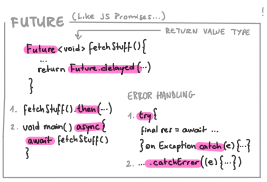 FUTURE (Like JS Promises...)
RETURN VALUE TYPE
Future<void> fetchStuff(){
...
return Future.delayed(...)
}
1. fetchStuff().then(...)
2. void main() async{
await fetchStuff()
}
ERROR HANDLING
1. try{
final res = await ...
} on Exception catch(e){...}
2. ... .catchError((e){...})